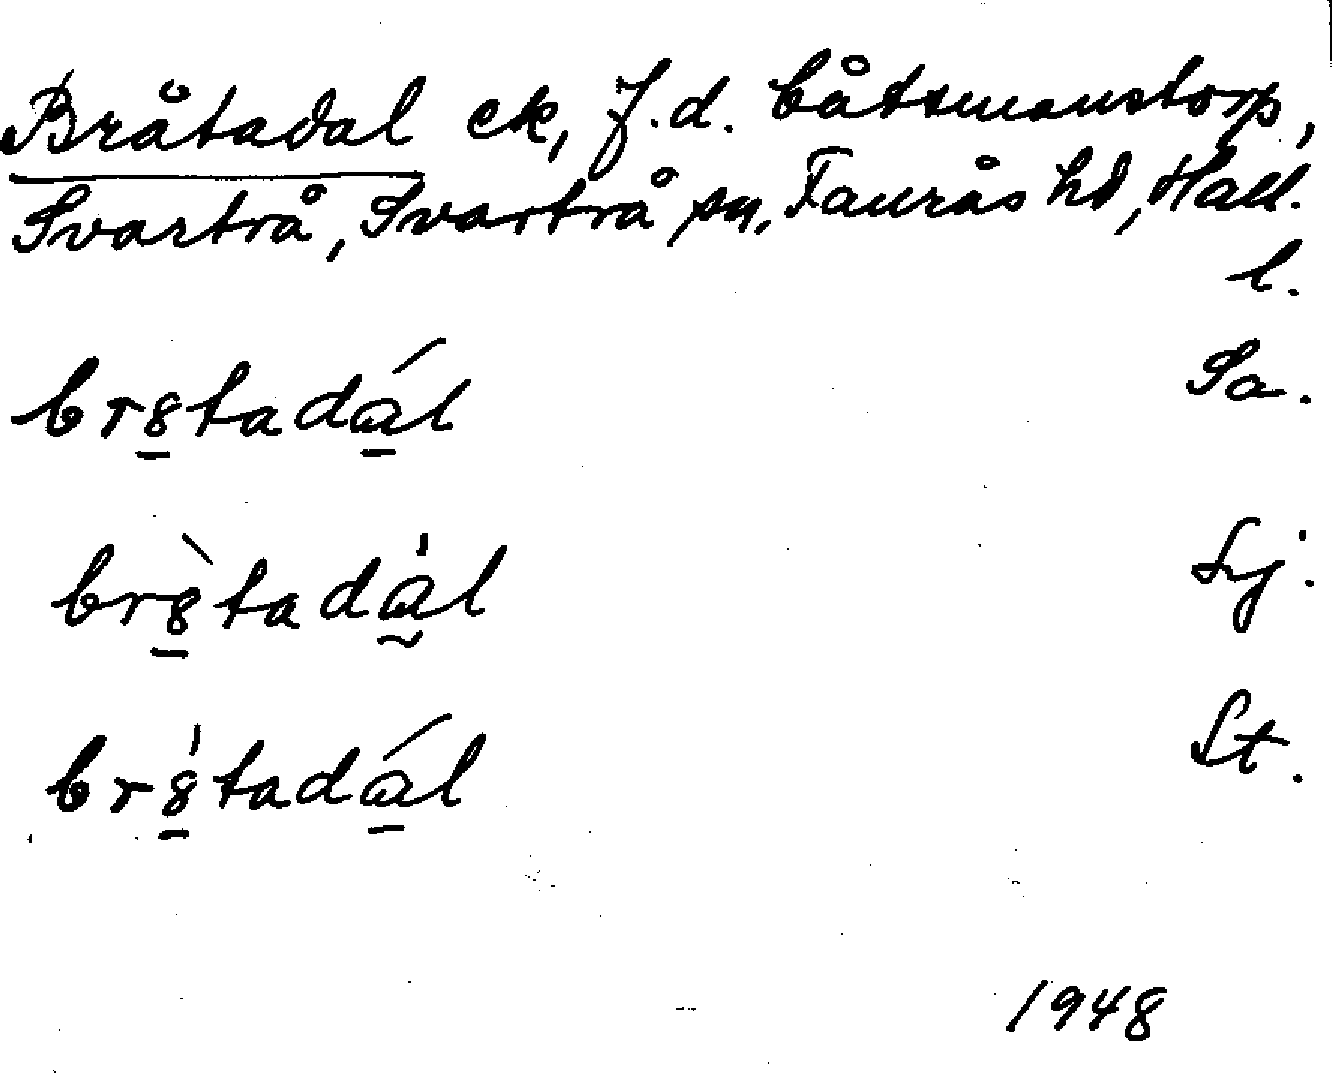 Bråtadal ck, f.d. båtsmanstorp,
Svartrå, Svartrå sn, Faurås hd, Hall.
l.
br8tadál Sa.
br8̀tada̍l Lj.
br8̍tadál St.
1948